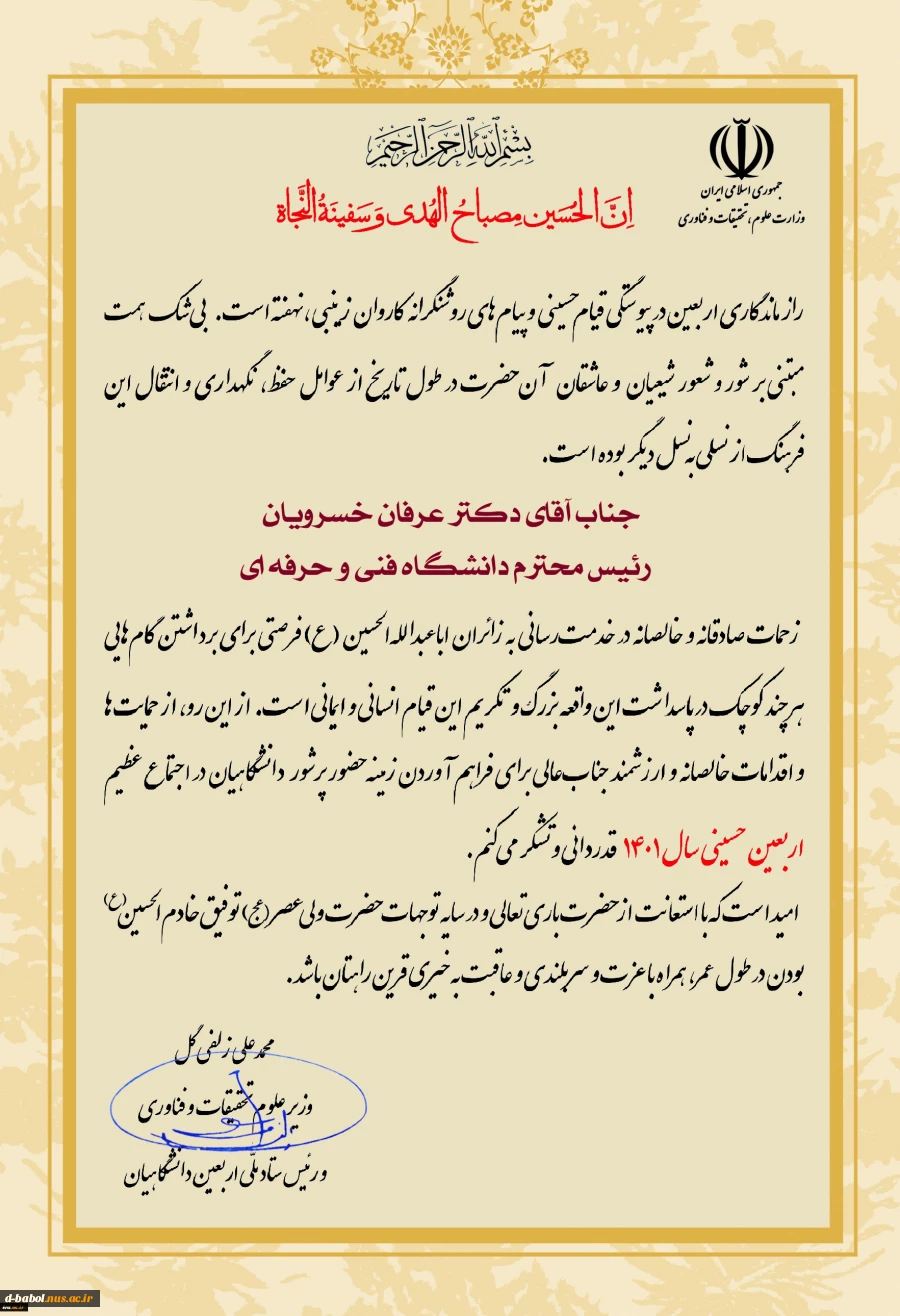 بِسْمِ اللهِ الرَّحْمنِ الرَّحیمِ
جمهوری اسلامی ایران
وزارت علوم، تحقیقات و فناوری
اِنَّ الحُسَین مِصباحُ الهُدی وَ سَفینَةُ النَّجاة
راز ماندگاری اربعین در پیوستگی قیام حسینی و پیام های روشنگرانه کاروان زینبی، نهفته است. بی شک همت
مبتنی بر شور و شعور شیعیان و عاشقان آن حضرت در طول تاریخ از عوامل حفظ، نگهداری و انتقال این
فرهنگ از نسلی به نسل دیگر بوده است.
جناب آقای دکتر عرفان خسرویان
رئیس محترم دانشگاه فنی و حرفه ای
زحمات صادقانه و خالصانه در خدمت رسانی به زائران اباعبدالله الحسین (ع) فرصتی برای برداشتن گام هایی
هر چند کوچک در پاسداشت این واقعه بزرگ و تکریم این قیام انسانی و ایمانی است. از این رو، از حمایت ها
و اقدامات خالصانه و ارزشمند جناب عالی برای فراهم آوردن زمینه حضور پرشور دانشگاهیان در اجتماع عظیم
اربعین حسینی سال ۱۴۰۱ قدردانی و تشکر می کنم.
امید است که با استعانت از حضرت باری تعالی و در سایه توجهات حضرت ولی عصر (عج) توفیق خادم الحسین (ع)
بودن در طول عمر، همراه با عزت و سربلندی و عاقبت به خیری قرین راهتان باشد.
محمد علی زلفی گل
وزیر علوم تحقیقات و فناوری
و رئیس ستاد ملّی اربعین دانشگاهیان
d-babol.nus.ac.ir